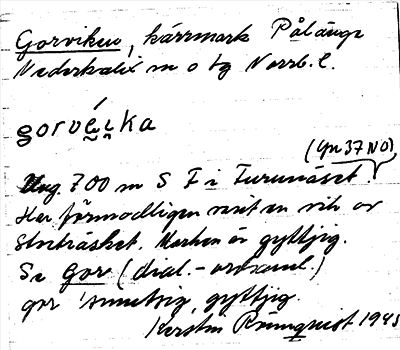 Gorviken, kärrmark Pålänge
Nederkalix sn o tg Norrb. l.
gorvéi̯ka
(Gn 37 NO)
Ung 700 m S F i Furunäset.
Har förmodligen varit en vik av
Storträsket. Marken är gyttjig.
Se Gor (dial.-ordsaml.)
gor 'smutsig, gyttjig.
Kerstin Rönnqvist 1943